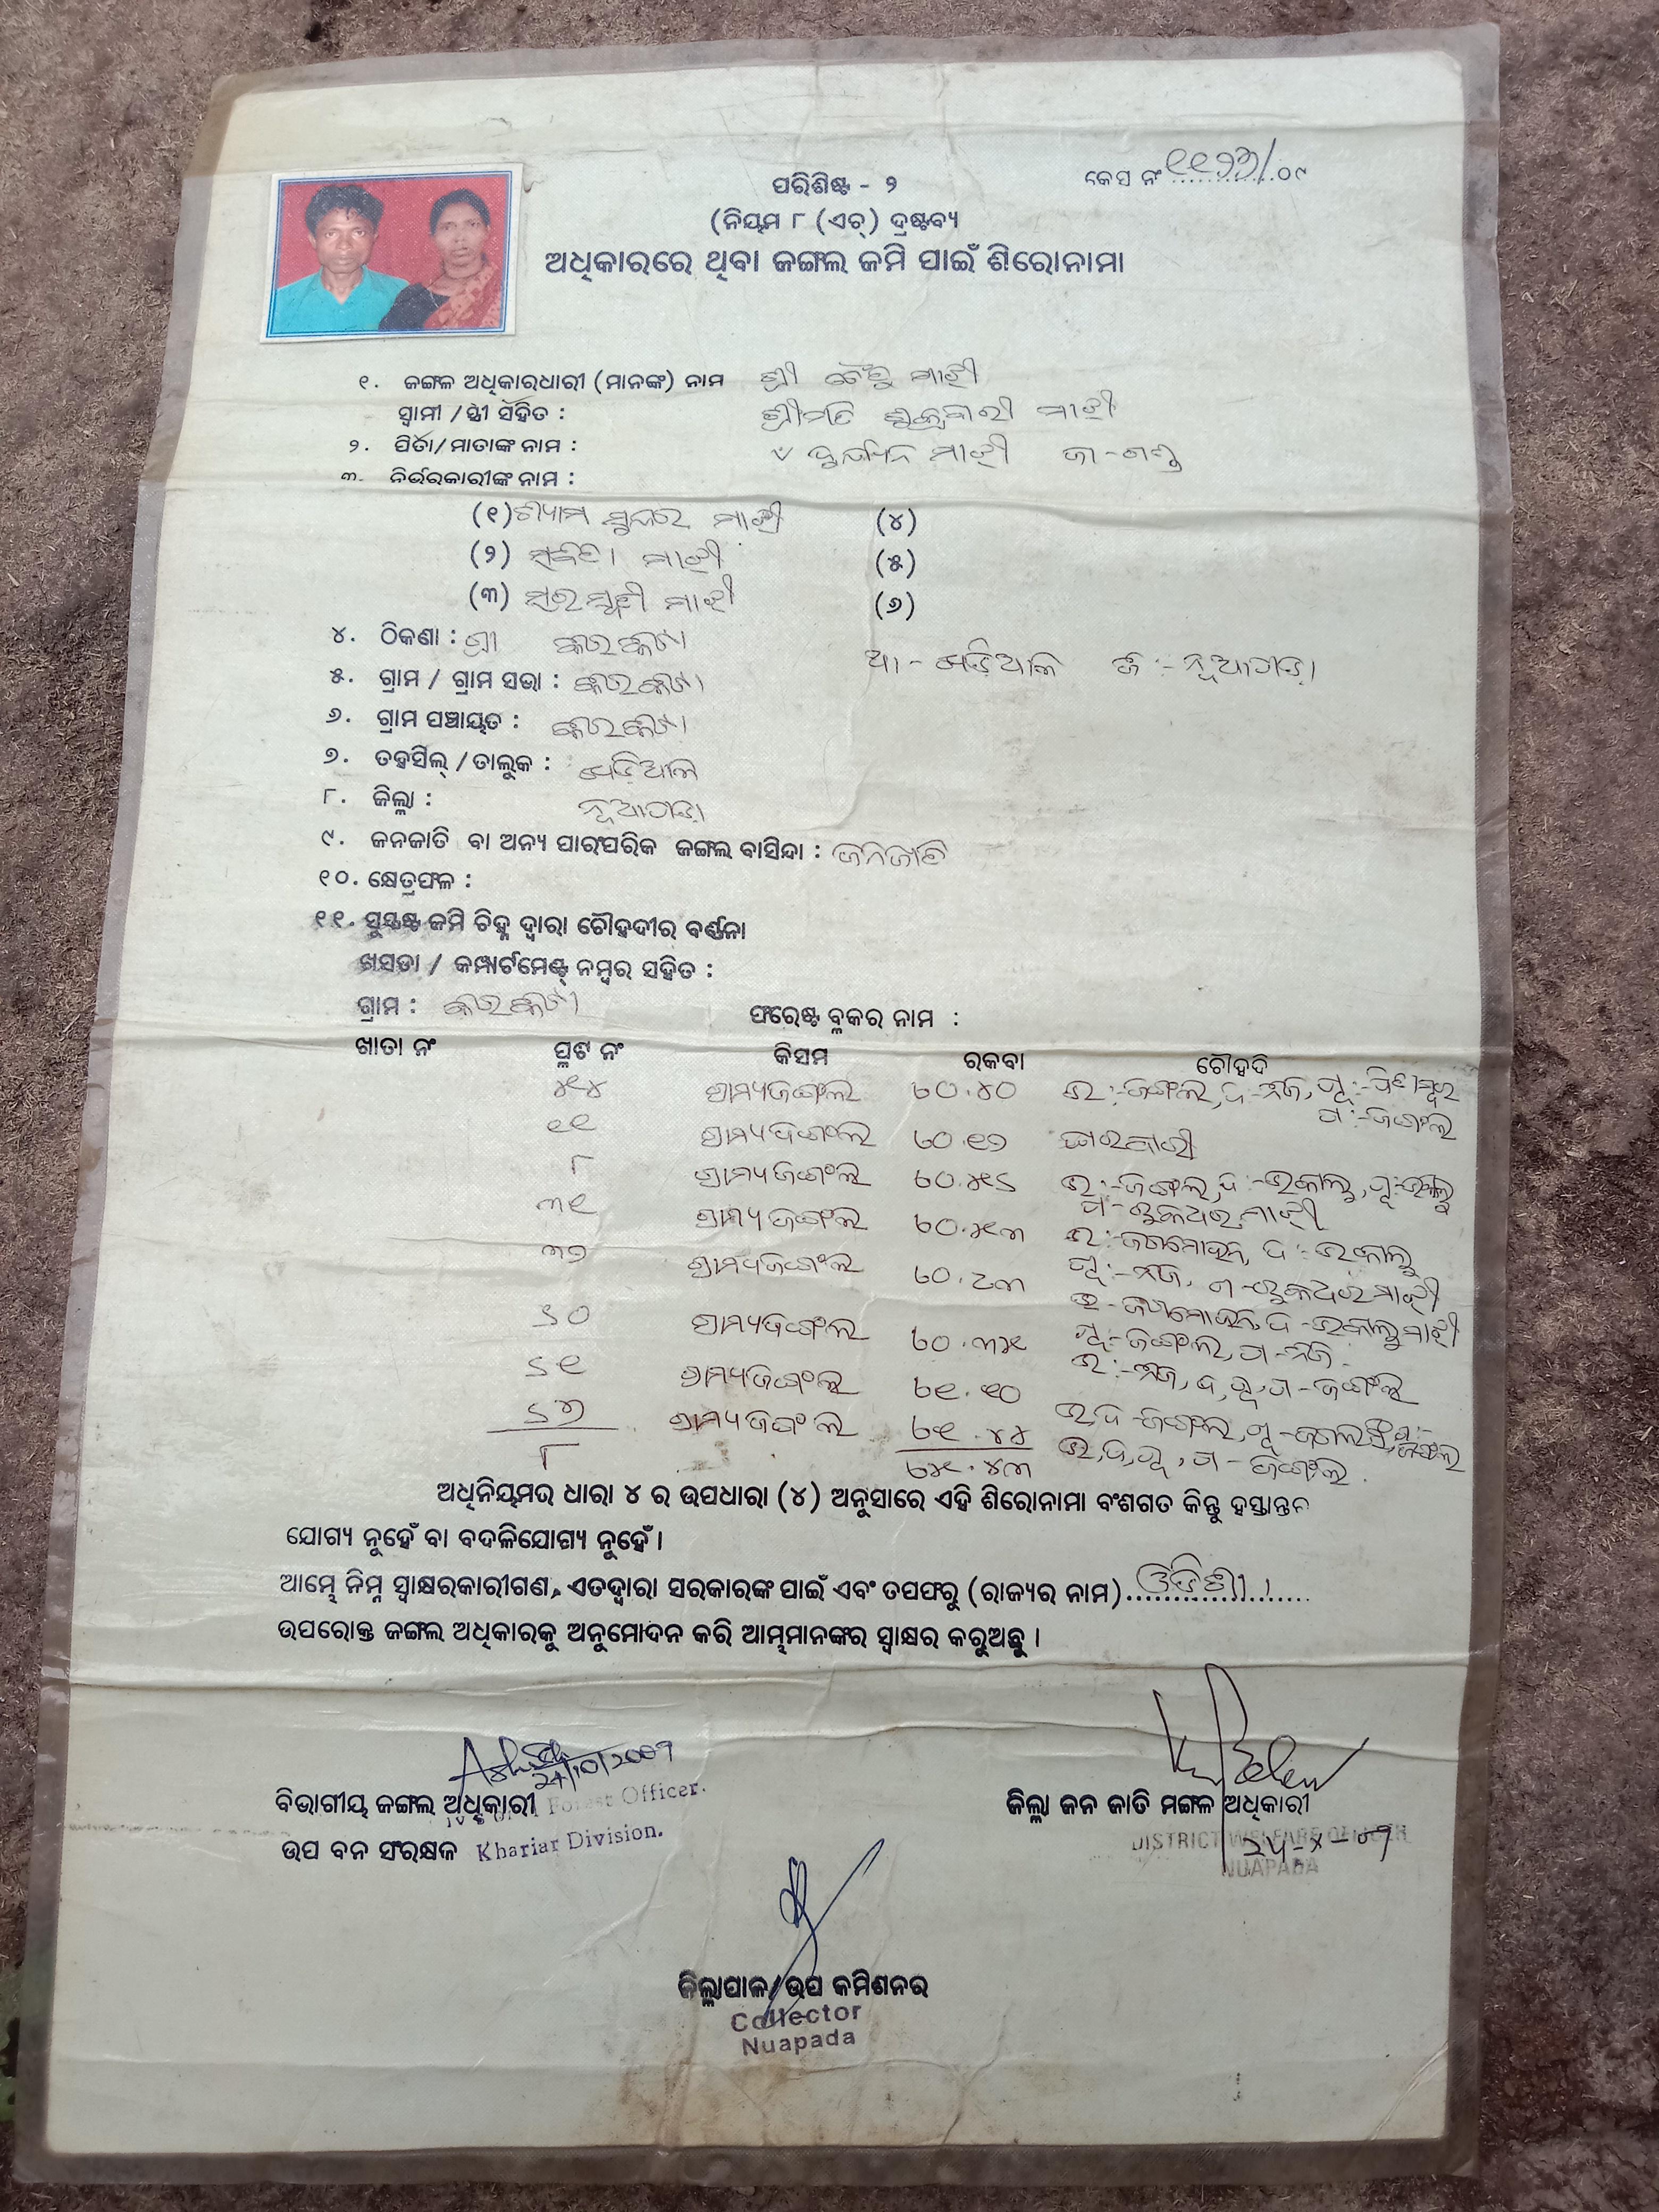 ପରିଶିଷ୍ଟ - ୨
କେସ ନଂ ୧୧୨୬/୦୯
(ନିୟମ ୮ (ଏଚ୍) ଦ୍ରଷ୍ଟବ୍ୟ
ଅଧିକାରରେ ଥିବା ଜଙ୍ଗଲ ଜମି ପାଇଁ ଶିରୋନାମା
୧. ଜଙ୍ଗଳ ଅଧିକାରଧାରୀ (ମାନଙ୍କ) ନାମ ଶ୍ରୀ ଚୈତୁ ମାଝୀ
ସ୍ୱାମୀ / ସ୍ତ୍ରୀ ସହିତ : ଶ୍ରୀମତି ଶୁକ୍ରବାରୀ ମାଝୀ
୨. ପିତା/ମାତାଙ୍କ ନାମ : ମାଝୀ ଜା - ଗଣ୍ଡ
୩. ନିର୍ଭରକାରୀଙ୍କ ନାମ :
(୧) ଶ୍ୟାମ ସୁନ୍ଦର ମାଝୀ (୪)
(୨) ସବିତା ମାଝୀ (୫)
(୩) ମାଝୀ (୬)
୪. ଠିକଣା : ଗ୍ରା କରକଟା ଥା - ଖଡ଼ିଆଳ ଜି :- ନୂଆପଡ଼ା
୫. ଗ୍ରାମ / ଗ୍ରାମ ସଭା : କରକଟା
୬. ଗ୍ରାମ ପଞ୍ଚାୟତ : କରକଟା
୭. ତହସିଲ୍ / ତାଲୁକ : ଖଡ଼ିଆଳ
୮. ଜିଲ୍ଲା : ନୂଆପଡ଼ା
୯. ଜନଜାତି ବା ଅନ୍ୟ ପାରଂପରିକ ଜଙ୍ଗଲ ବାସିନ୍ଦା : ଜନଜାତି
୧୦. କ୍ଷେତ୍ରଫଳ :
୧୧. ସୁସ୍ପଷ୍ଟ ଜମି ଚିହ୍ନ ଦ୍ୱାରା ଚୌହଦୀର ବର୍ଣ୍ଣନା
ଖସଡା / କମ୍ପାର୍ଟମେଣ୍ଟ୍ ନମ୍ବର ସହିତ :
ଗ୍ରାମ : କରକଟା ଫରେଷ୍ଟ ବ୍ଲକର ନାମ :
ଖାତା ନଂ ପ୍ଲଟ ନଂ କିସମ ରକବା ଚୌହଦି
୫୪ ଗ୍ରାମ୍ୟଜଙ୍ଗଲ ୦.୪୦ ଉ:-ଜଙ୍ଗଲ, ଦ-ନିଜ, ପୂ:-
ପ:-ଜଙ୍ଗଲ
୧୧ ଗ୍ରାମ୍ୟଜଙ୍ଗଲ ୦.୧୭ ଘରବାରୀ
୮ ଗ୍ରାମ୍ୟଜଙ୍ଗଲ ୦.୫୨ ଉ:-ଜଙ୍ଗଲ, ଦ:-
ମାଝୀ
୩୧ ଗ୍ରାମ୍ୟଜଙ୍ଗଲ ୦.୫୩ ଉ:-ଜଗମୋହନ, ଦ:-
ପୂ:-ନିଜ, ପ- ମାଝୀ
୩୭ ଗ୍ରାମ୍ୟଜଙ୍ଗଲ ୦.୮୩ ଉ-ଜଗମୋହନ, ଦ- ମାଝୀ
ପୂ:-ଜଙ୍ଗଲ, ପ-ନିଜ.
୨୦ ଗ୍ରାମ୍ୟଜଙ୍ଗଲ ୦.୩୫ ଉ:-ନିଜ, ଦ, ପୂ, ପ-ଜଙ୍ଗଲ
୨୧ ଗ୍ରାମ୍ୟଜଙ୍ଗଲ ୧.୧୦ ଉ,ଦ-ଜଙ୍ଗଲ, ପୂ-
ଗ୍ରାମ୍ୟଜଙ୍ଗଲ ୧.୪୪ ଉ,ଦ,ପୂ,ପ-ଜଙ୍ଗଲ.
୮ ୫.୪୩
ଅଧିନିୟମର ଧାରା ୪ ର ଉପଧାରା (୪) ଅନୁସାରେ ଏହି ଶିରୋନାମା ବଂଶଗତ କିନ୍ତୁ ହସ୍ତାନ୍ତର
ଯୋଗ୍ୟ ନୁହେଁ ବା ବଦଳିଯୋଗ୍ୟ ନୁହେଁ ।
ଆମ୍ଭେ ନିମ୍ନ ସ୍ୱାକ୍ଷରକାରୀଗଣ, ଏତଦ୍ୱାରା ସରକାରଙ୍କ ପାଇଁ ଏବଂ ତପଫରୁ (ରାଜ୍ୟର ନାମ) ଓଡିଶା
ଉପରୋକ୍ତ ଜଙ୍ଗଲ ଅଧିକାରକୁ ଅନୁମୋଦନ କରି ଆମ୍ଭମାନଙ୍କର ସ୍ୱାକ୍ଷର କରୁଅଛୁ ।
ବିଭାଗୀୟ ଜଙ୍ଗଲ ଅଧିକାରୀ Forest Officer.
ଉପ ବନ ସଂରକ୍ଷକ Khariar Division.
ଜିଲ୍ଲା ଜନ ଜାତି ମଙ୍ଗଳ ଅଧିକାରୀ
DISTRICT WELFARE OFFICER
NUAPADA
ଜିଲ୍ଲାପାଳ/ଉପ କମିଶନର
Collector
Nuapada